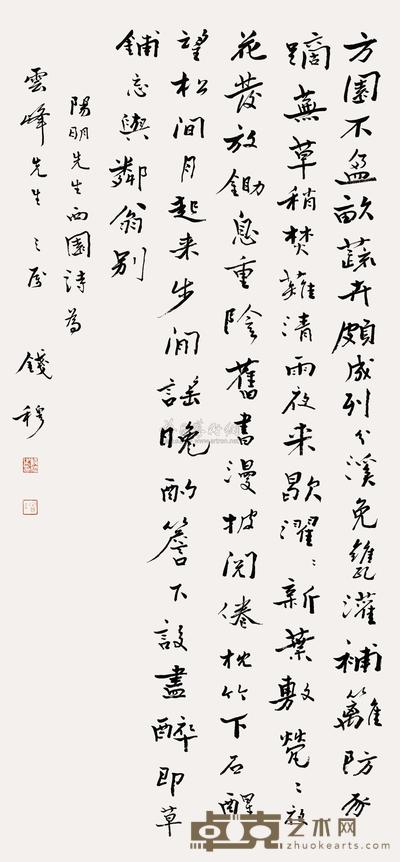 方園不盈畝蔬卉頗成列分溪免甕灌補籬防豕
蹢蕪草稍焚薙清雨夜來歇濯〻新葉敷熒〻夜
花發放鋤息重陰舊書漫披閱倦枕竹下石醒
望松間月起來步閒謠晚酌簷下設盡醉即草
鋪忘與鄰翁別
陽明先生西園詩為
雲峰先生之屬
錢穆
卓克艺术网
www.zhuokearts.com